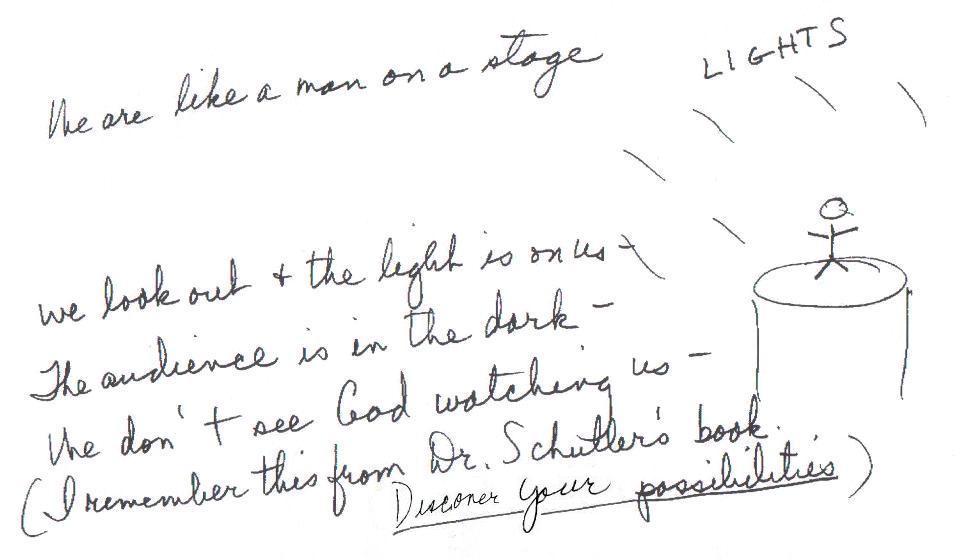 We are like a man on a stage
LIGHTS
we look out & the light is on us -
The audience is in the dark -
We don't see God watching us -
(I remember this from Dr. Schuller's book.
Discover Your possibilities)